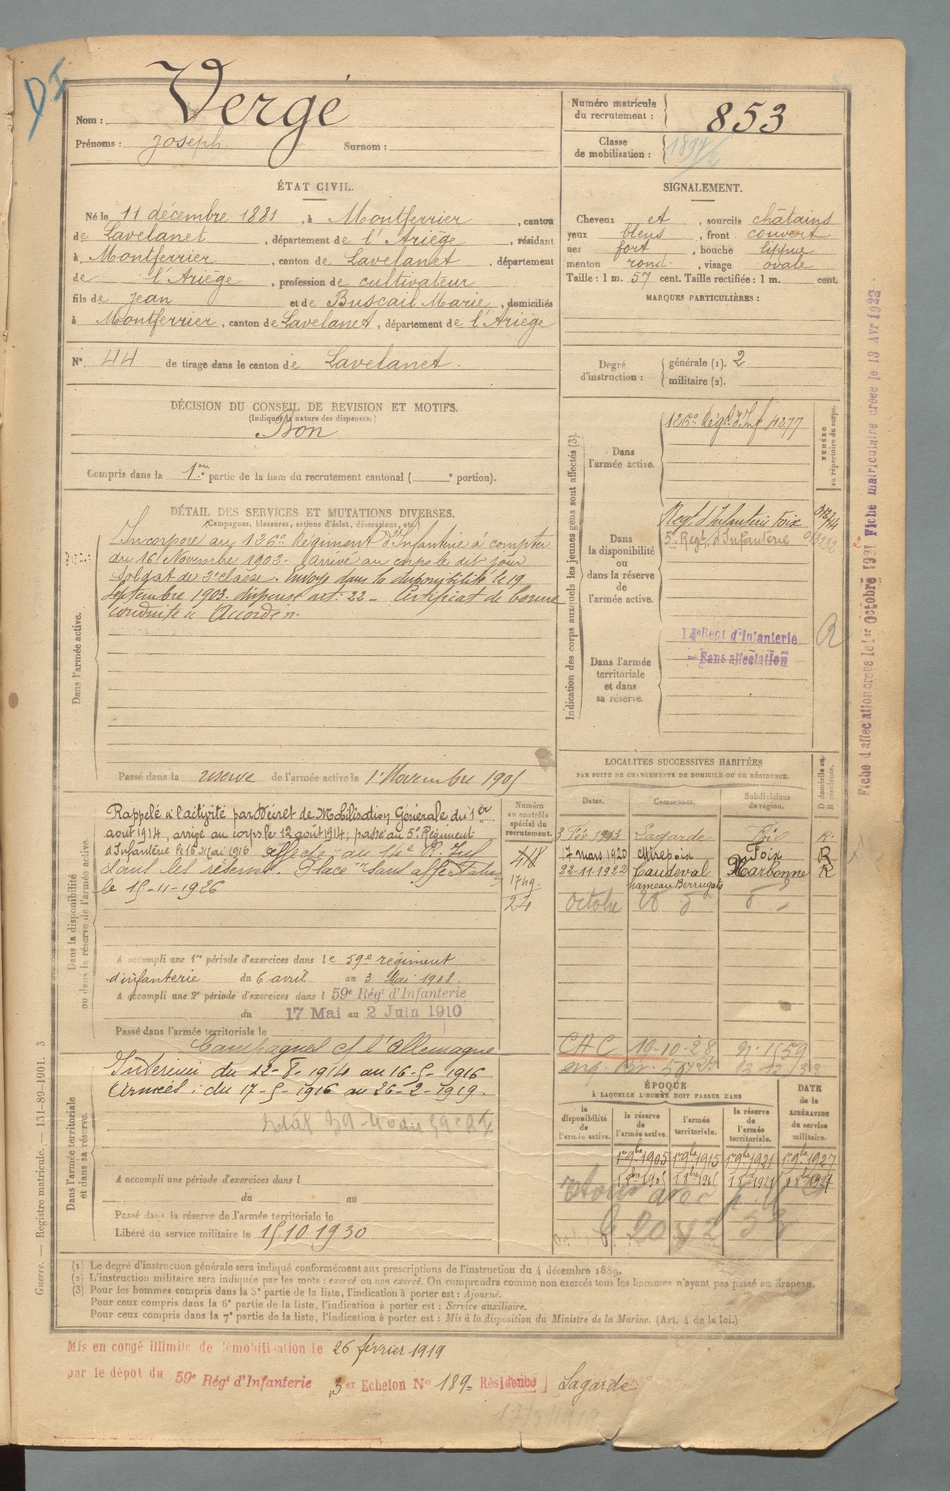 DI
Nom : Vergé
Prénoms : Joseph Surnom :
Numéro matricule du recrutement : 853
Classe de mobilisation :
ÉTAT CIVIL.
Né le 11 décembre 1881, à Montferrier, canton
de Lavelanet, département de l'Ariège, résidant
à Montferrier, canton de Lavelanet, département
de l'Ariège, profession de cultivateur
fils de Jean et de Buscail Marie, domiciliés
à Montferrier, canton de Lavelanet, département de l'Ariège
N° 44 de tirage dans le canton de Lavelanet.
SIGNALEMENT.
Cheveux et, sourcils châtains
yeux bleus, front couvert
nez fort, bouche lippue
menton rond, visage ovale
Taille : 1 m. 57 cent. Taille rectifiée : 1 m. cent.
MARQUES PARTICULIÈRES :
Degré d'instruction : générale (1). 2
militaire (2).
DÉCISION DU CONSEIL DE REVISION ET MOTIFS.
(Indiquer la nature des dispenses.)
Bon
Compris dans la 1re partie de la liste du recrutement cantonal ( e portion).
DÉTAIL DES SERVICES ET MUTATIONS DIVERSES.
(Campagnes, blessures, actions d'éclat, décorations, etc.)
Dans l'armée active.
Incorporé au 126e Régiment d'Infanterie à compter
du 16 Novembre 1902. Arrivé au corps le dit jour
Soldat de 2e classe. Envoyé dans la disponibilité le 19
Septembre 1903. dispensé art. 22 - Certificat de bonne
conduite " Accordé ".
Passé dans la réserve de l'armée active le 1er Novembre 1905
Indication des corps auxquels les jeunes gens sont affectés (3).
NUMÉRO au répertoire du corps.
Dans l'armée active.
126e Régt d'Inf 4277
Dans la disponibilité ou dans la réserve de l'armée active.
Regt d'Infanterie Foix
5e Régt d'Infanterie
Dans l'armée territoriale et dans sa réserve.
14e Regt d'Infanterie
Sans affectation
R
Fiche d'affectation créée le 1er Octobre 1921 Fiche matriculaire créée le 13 Avr 1923
Dans la disponibilité ou dans la réserve de l'armée active.
Rappelé à l'activité par Décret de Mobilisation Générale du 1er
août 1914, arrivé au corps le 12 août 1914, passé au 5e Régiment
d'Infanterie le 16 Mai 1916 affecté au 14e R. Inf
dans les réserves. Placé "Sans affectation"
le 15-11-1926
Numéro au contrôle spécial du recrutement.
418
1749
24
A accompli une 1re période d'exercices dans le 59e régiment
d'infanterie du 6 avril au 3 Mai 1908.
A accompli une 2e période d'exercices dans l 59e Régt d'Infanterie
du 17 Mai au 2 Juin 1910
Passé dans l'armée territoriale le
Campagnes c/ l'Allemagne
Dans l'armée territoriale et dans sa réserve.
Intérieur du 12-8-1914 au 16-5-1916
Armées : du 17-5-1916 au 26-2-1919.
A accompli une période d'exercices dans l
du au
Passé dans la réserve de l'armée territoriale le
Libéré du service militaire le 15 10 1930
LOCALITÉS SUCCESSIVES HABITÉES
PAR SUITE DE CHANGEMENTS DE DOMICILE OU DE RÉSIDENCE.
Dates. Communes. Subdivisions de région. D domicile ou R résidence.
3 Fév 1913 Lagarde Foix R.
17 mars 1920 Mirepoix Foix R
22-11-1922 Caudeval Narbonne R
hameau Berrugats
CAC 10-10-28
ÉPOQUE
À LAQUELLE L'HOMME DOIT PASSER DANS
la disponibilité de l'armée active. la réserve de l'armée active. l'armée territoriale. la réserve de l'armée territoriale.
DATE de la LIBÉRATION du service militaire.
1er 9bre 1905 1er 9bre 1915 1er 9bre 1921 1er 9bre 1927
(1) Le degré d'instruction générale sera indiqué conformément aux prescriptions de l'instruction du 4 décembre 1889.
(2) L'instruction militaire sera indiquée par les mots : exercé ou non exercé. On comprendra comme non exercés tous les hommes n'ayant pas passé au drapeau.
(3) Pour les hommes compris dans la 5e partie de la liste, l'indication à porter est : Ajourné.
Pour ceux compris dans la 6e partie de la liste, l'indication à porter est : Service auxiliaire.
Pour ceux compris dans la 7e partie de la liste, l'indication à porter est : Mis à la disposition du Ministre de la Marine. (Art. 4 de la loi.)
Guerre. — Registre matricule. — 131-89-1901. 3
Mis en congé illimité de démobilisation le 26 février 1919
par le dépôt du 59e Régt d'Infanterie 3e Echelon N° 189 - Résidence Lagarde